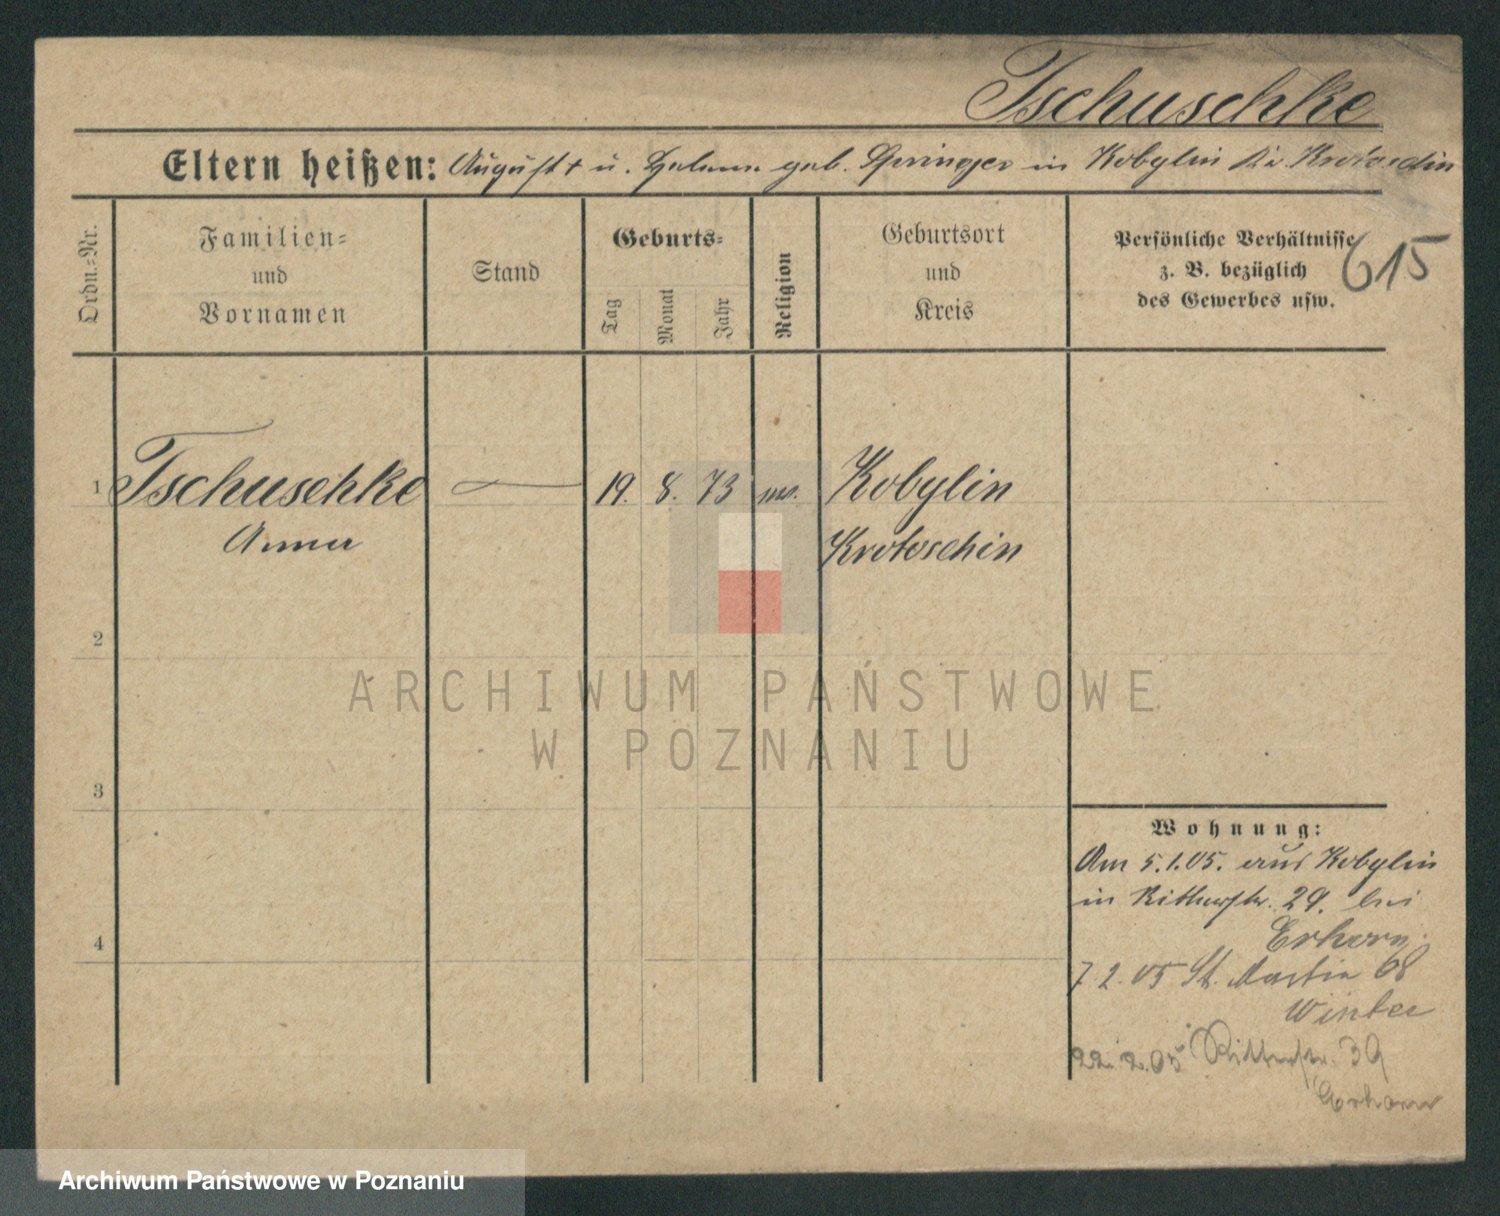 Tschuschke
Eltern heißen: August † u. Helene geb. Springer in Kobylin Kr. Krotoschin
Ordn.-Nr.
Familien-
und
Vornamen
Stand
Geburts-
Tag
Monat
Jahr
Religion
Geburtsort
und
Kreis
Persönliche Verhältnisse
z. B. bezüglich
des Gewerbes usw.
615
1 Tschuschke — 19. 8. 73 Kobylin
Anna Krotoschin
2
3
4
ARCHIWUM PAŃSTWOWE
W POZNANIU
Wohnung:
Am 5.1.05. aus Kobylin
in Ritterstr. 29. bei
Erhorn.
7.2.05 St. Martin 68
Winter
22.2.05 Ritterstr. 39
Erhorn
Archiwum Państwowe w Poznaniu